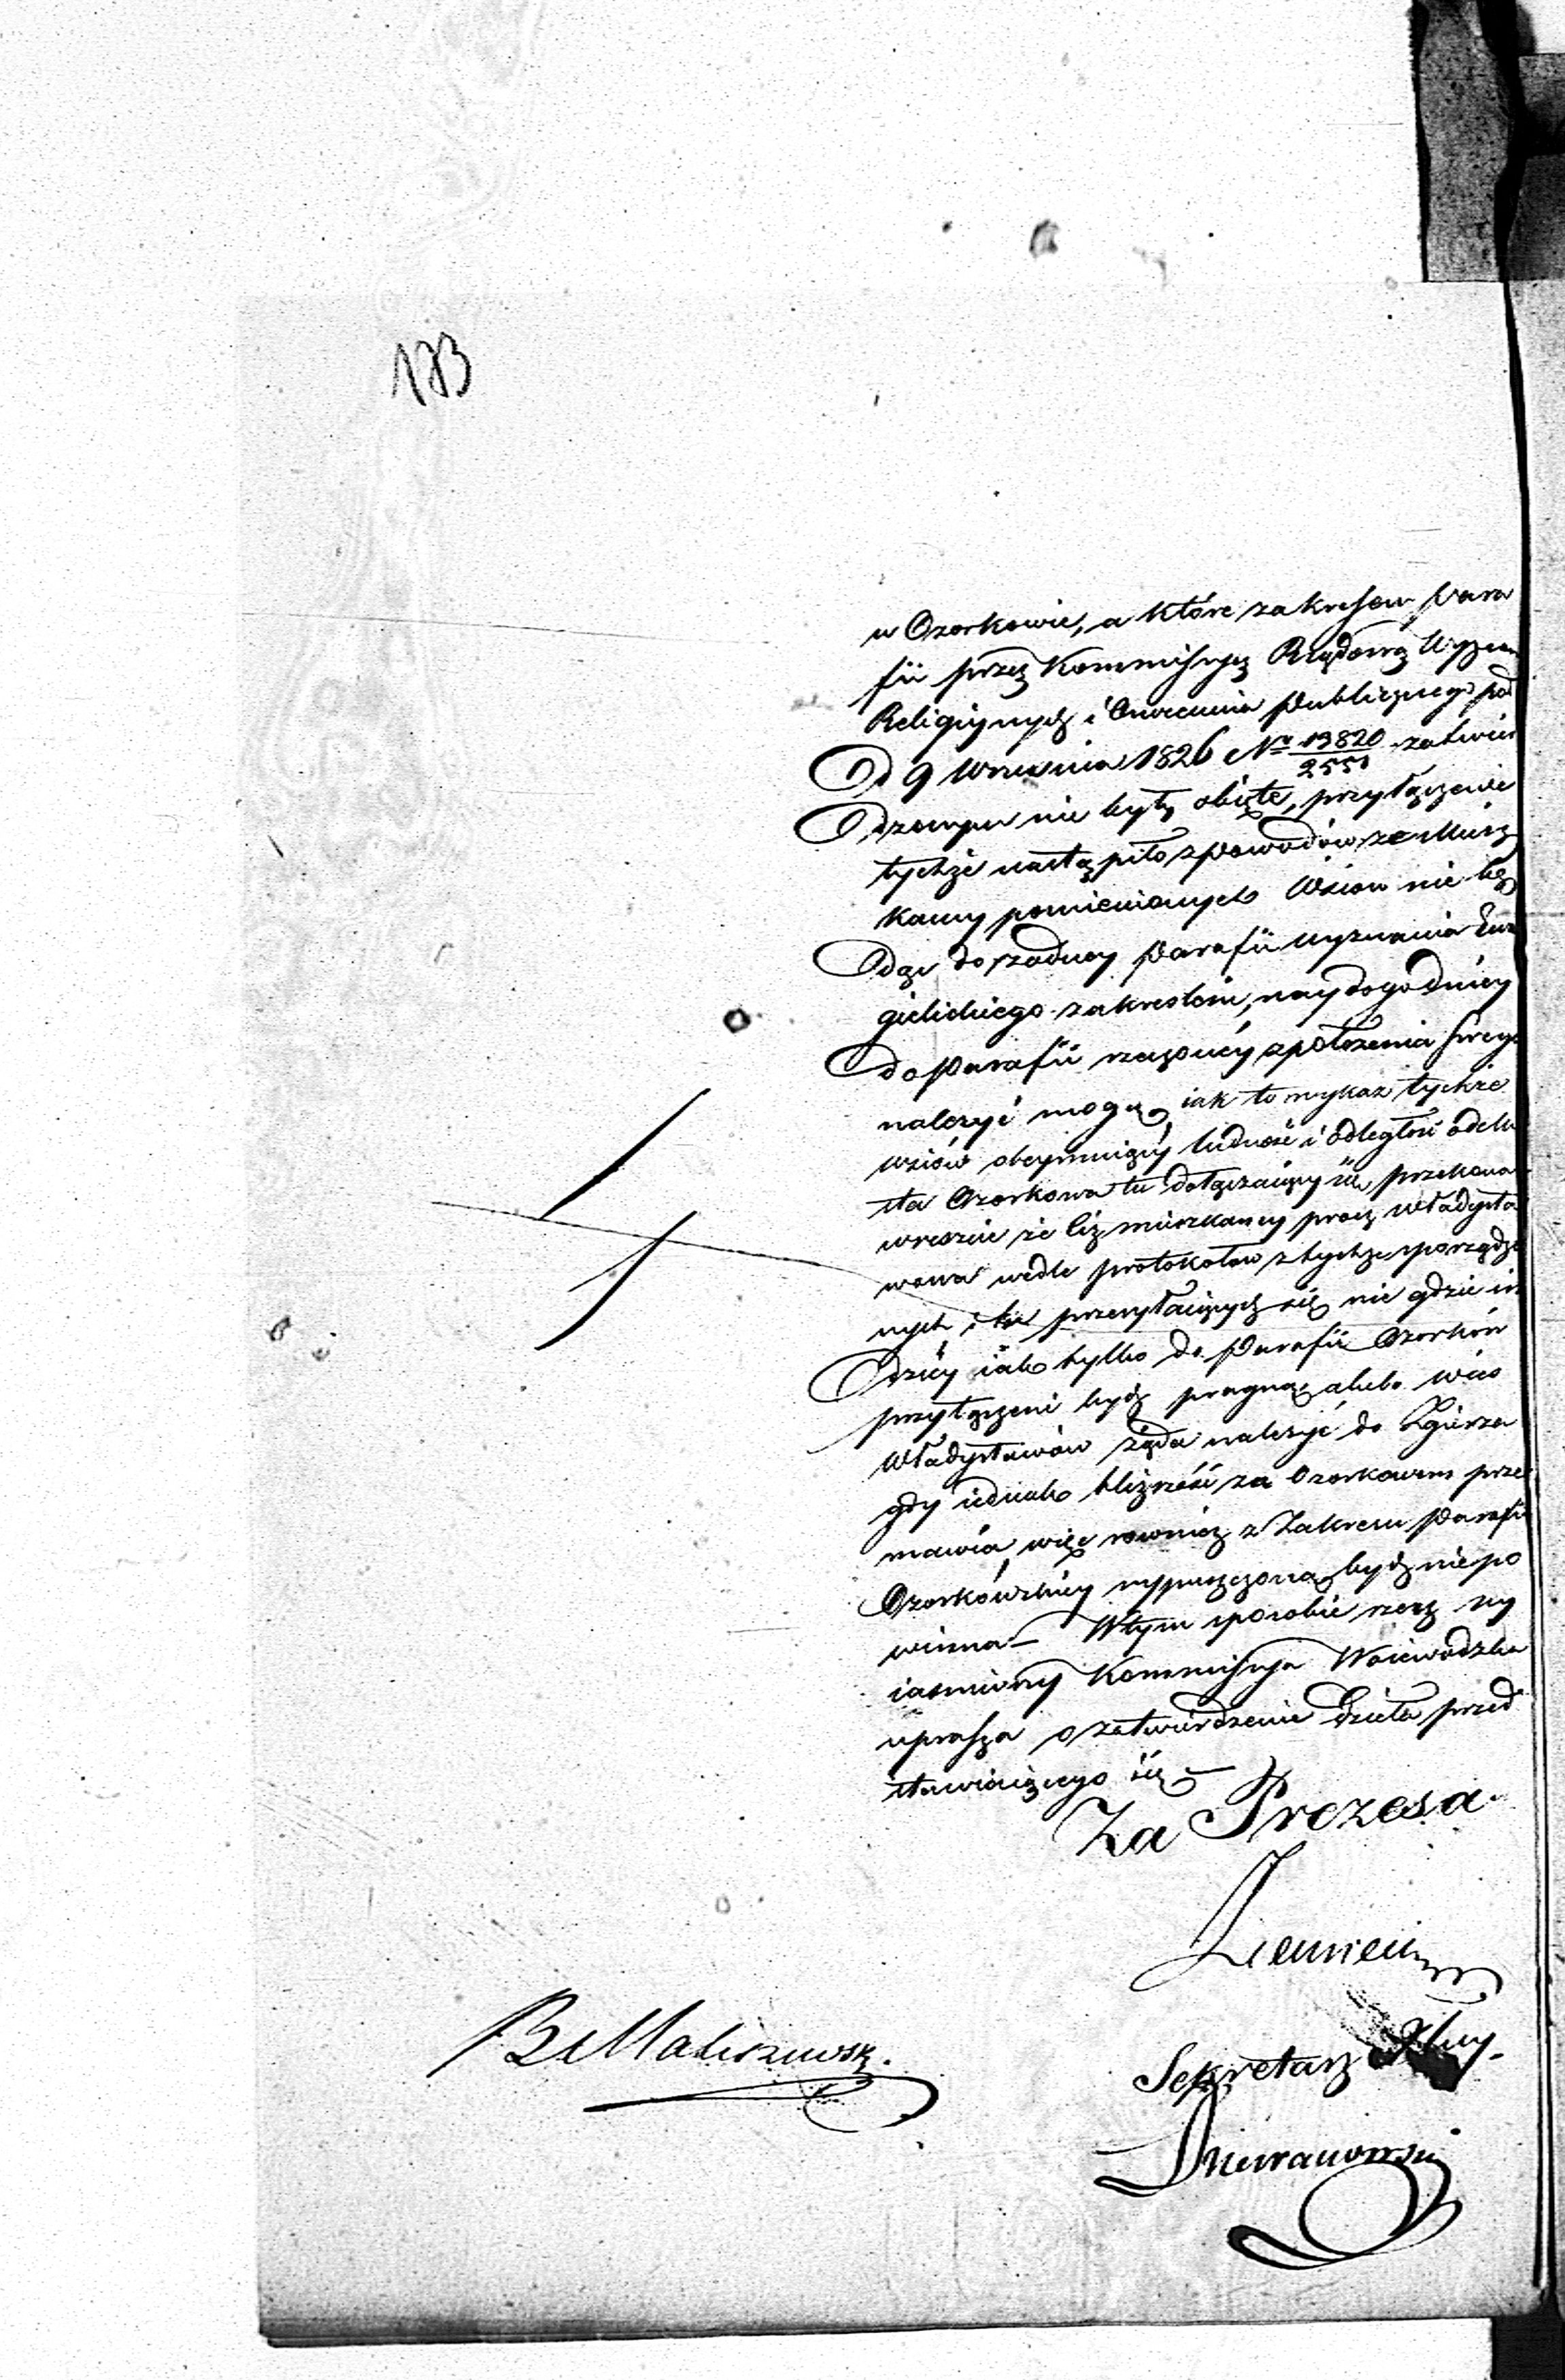 173
w Ozorkowie, a które zakresem Para
fii przez Kommissyą Rządową Wyznań
Religijnych i Oświecenia Publicznego pod
D 9 Września 1826 No 19820/2551 zatwier
dzonym nie były objęte, przyłączenie
tychże nastąpiło z powodów, że Miesz
kańcy pomienionych Wsiow nie bę
dąc do żadney Parafii wyznania Ewa
gielickiego zakreśleni, naydogodniey
do Parafii rzeczoney z położenia swego
należyć mogą, iak to wykaz tychże
wsiów obeymuiący ludność i odległość od Mia
sta Ozorkowa tu dołączaiący się przekona
wreszcie że ciż mieszkańcy procz Władysła
wowa wedle protokołow z tychże sporządzo
nych i tu przesyłaiących się nie gdzie in
dziey iak tylko do Parafii Ozorków
przyłączeni bydź pragną, a lubo wieś
Władysławów żąda należyć do Zgierza
gdy iednak bliższość za Ozorkowem prze
mawia, więc rownież z Zakresu Parafii
Ozorkówskiey wypuszczoną bydź niepo
winna — W tym sposobie rzecz wy
iaśniwszy Kommissya Woiewódzka
uprasza o zatwierdzenie dzieła przed
stawiaiącego się —
Za Prezesa
Sekretarz